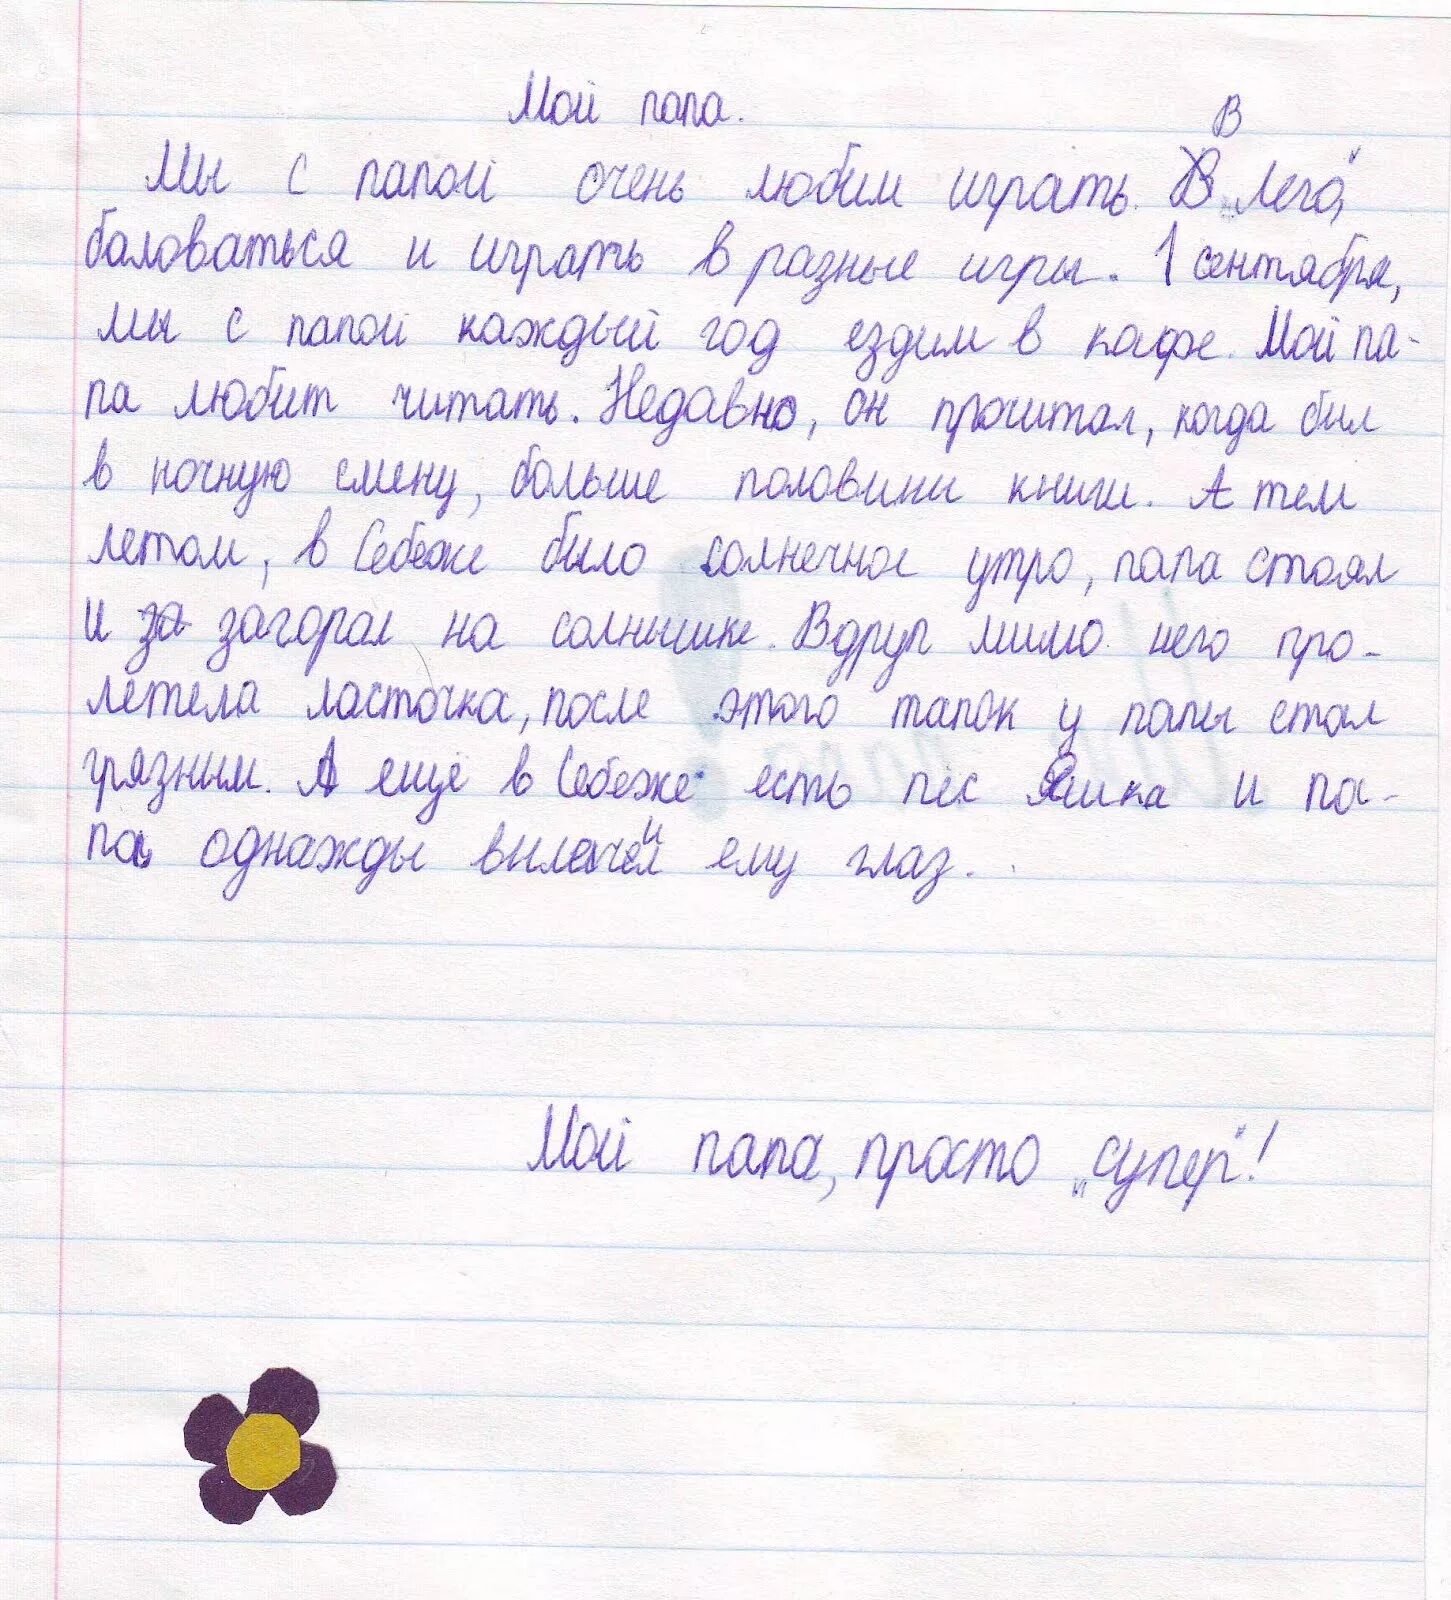 Мой папа.
Мы с папой очень любим играть в „Лего“,
баловаться и играть в разные игры. 1 сентября,
мы с папой каждый год ездим в кафе. Мой па-
па любит читать. Недавно, он прочитал, когда был
в ночную смену, больше половины книги. А тем
летом, в Себеже было солнечное утро, папа стоял
и за загорал на солнышке. Вдруг мимо него про-
летела ласточка, после этого тапок у папы стал
грязным. А ещё в Себеже есть пёс Яшка и па-
па однажды вылечил ему глаз.
Мой папа, просто „супер“!